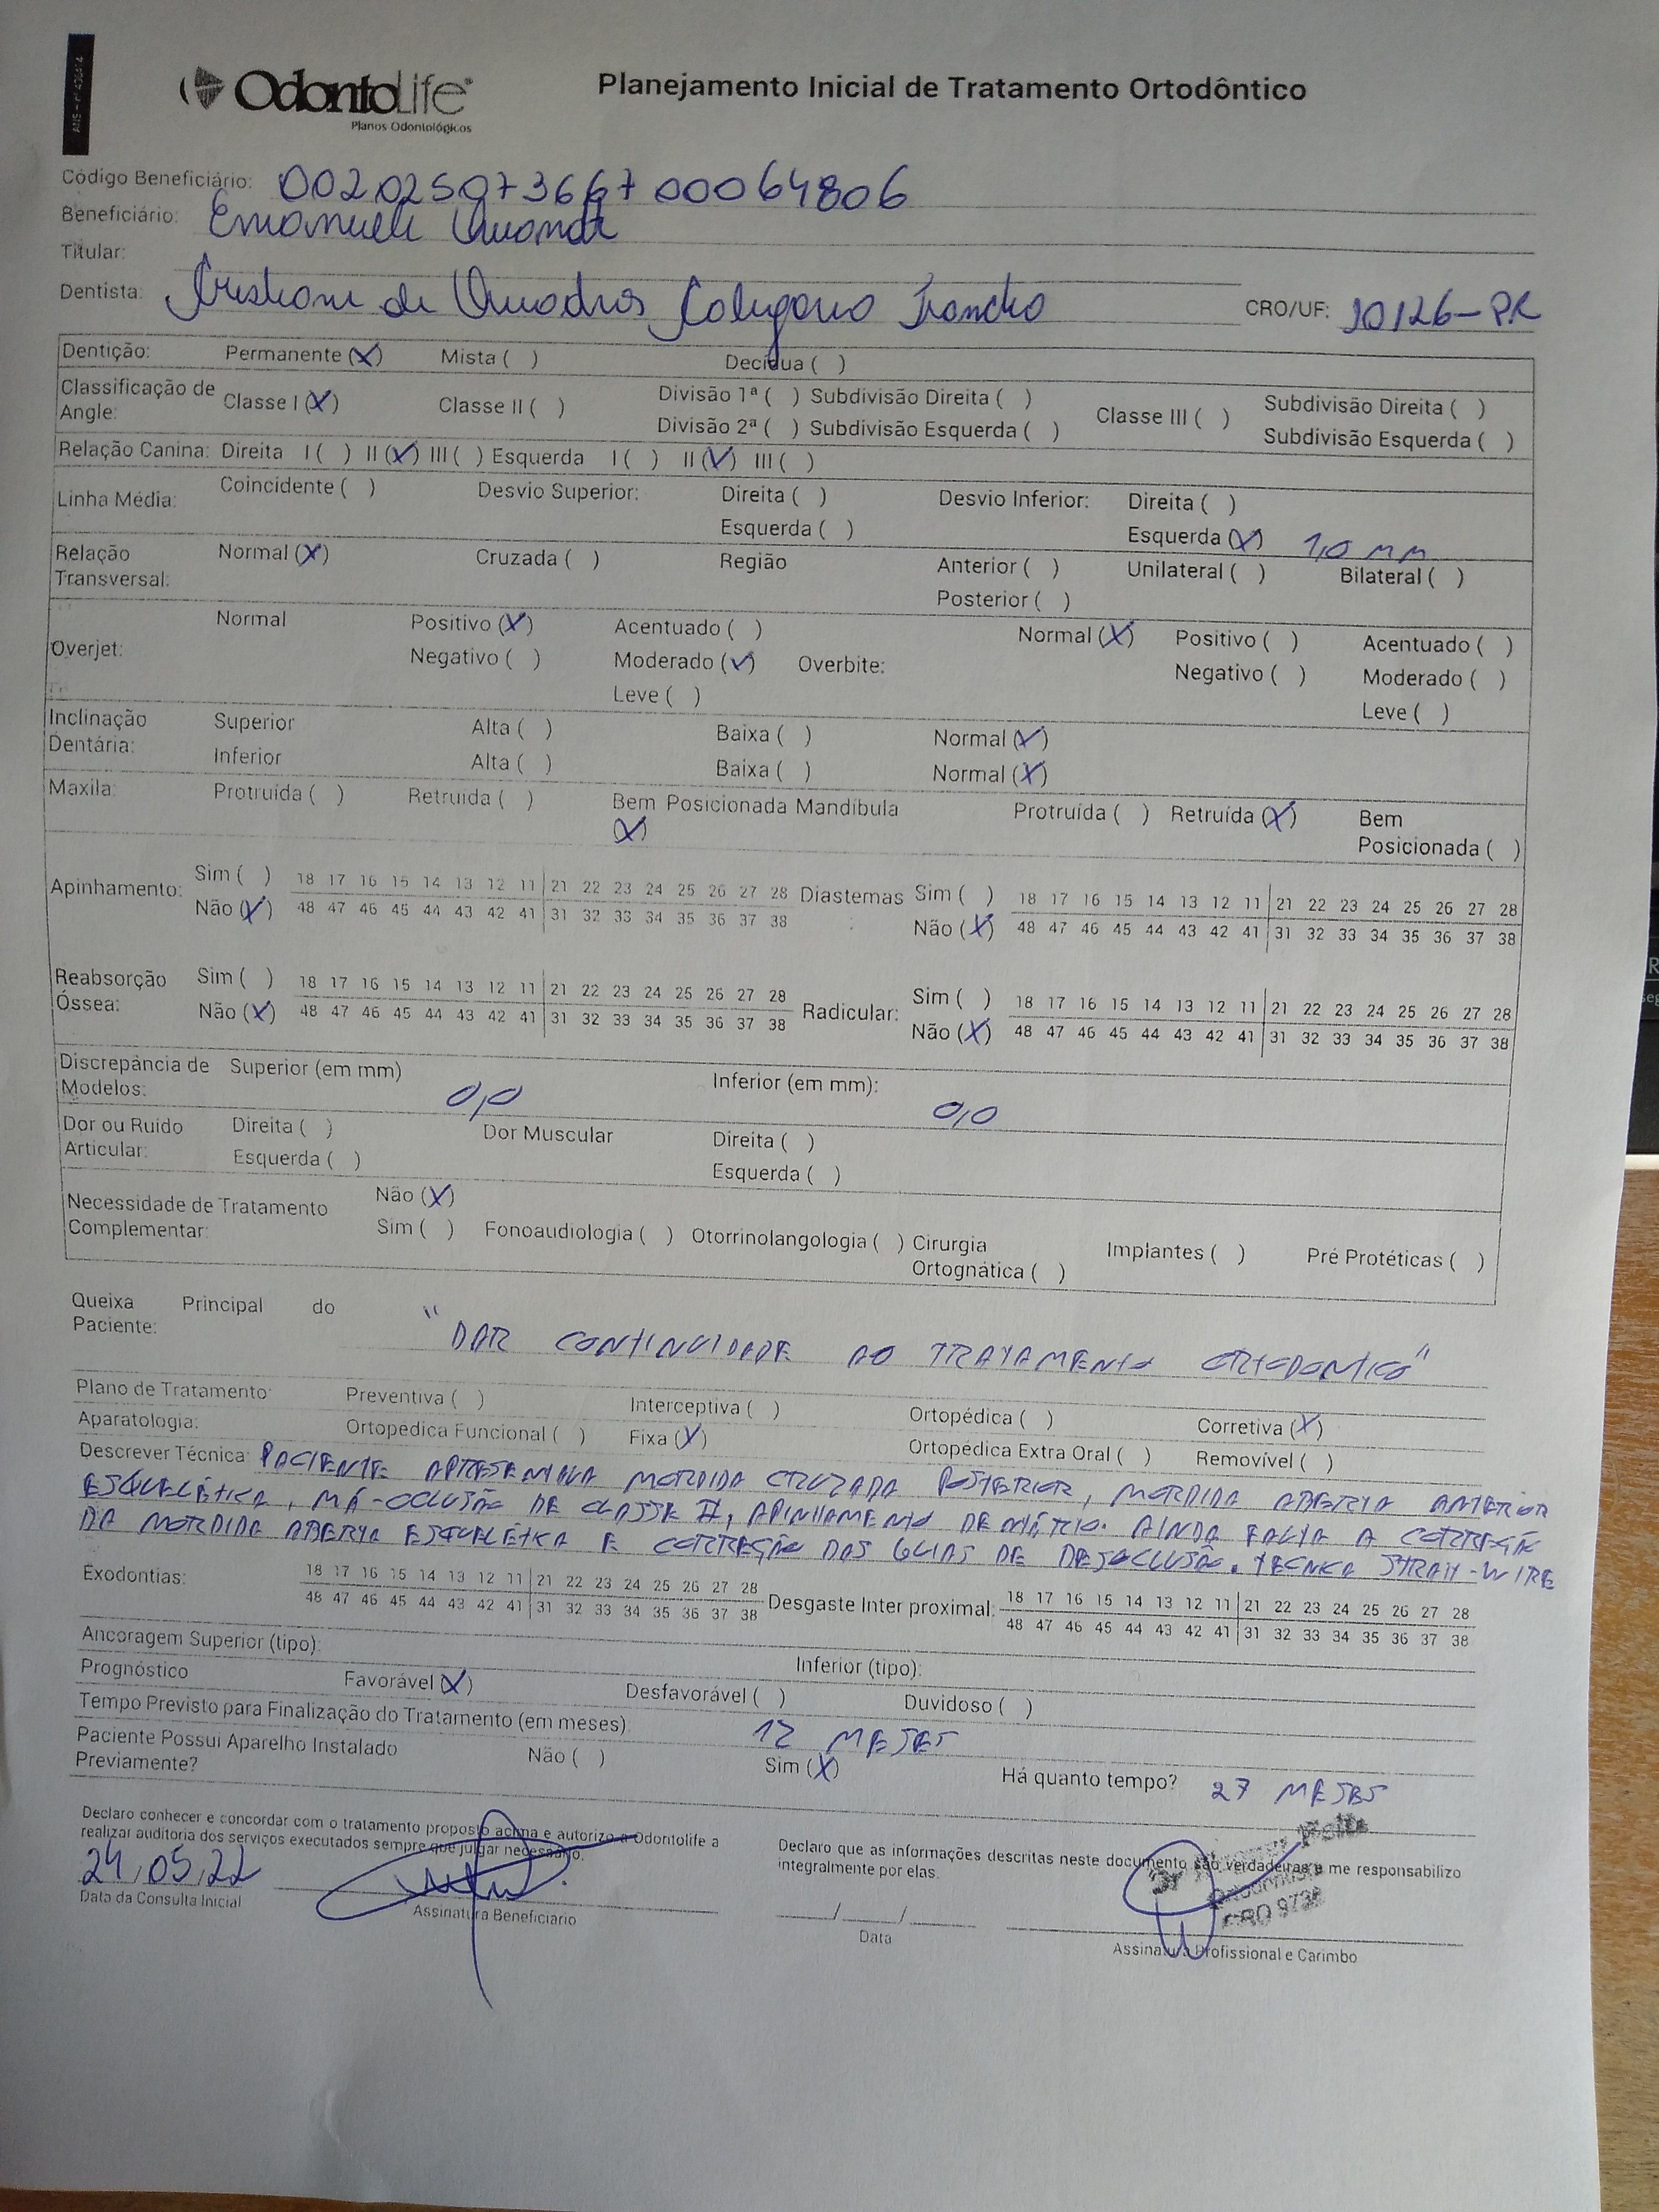 ANS - nº 406414
OdontoLife®
Planos Odontológicos
Planejamento Inicial de Tratamento Ortodôntico
Código Beneficiário: 00202507366700064806
Beneficiário: Emanueli
Titular:
Dentista: de Quadros CRO/UF: 10126-PR
Dentição: Permanente (X) Mista ( ) Decídua ( )
Classificação de Angle: Classe I (X) Classe II ( ) Divisão 1ª ( ) Subdivisão Direita ( ) Classe III ( ) Subdivisão Direita ( )
Divisão 2ª ( ) Subdivisão Esquerda ( ) Subdivisão Esquerda ( )
Relação Canina: Direita I ( ) II (X) III ( ) Esquerda I ( ) II (X) III ( )
Linha Média: Coincidente ( ) Desvio Superior: Direita ( ) Desvio Inferior: Direita ( )
Esquerda ( ) Esquerda (X) 1,0 mm
Relação Transversal: Normal (X) Cruzada ( ) Região Anterior ( ) Unilateral ( ) Bilateral ( )
Posterior ( )
Overjet: Normal Positivo (X) Acentuado ( ) Normal (X) Positivo ( ) Acentuado ( )
Negativo ( ) Moderado (X) Overbite: Negativo ( ) Moderado ( )
Leve ( ) Leve ( )
Inclinação Dentária: Superior Alta ( ) Baixa ( ) Normal (X)
Inferior Alta ( ) Baixa ( ) Normal (X)
Maxila: Protruída ( ) Retruída ( ) Bem Posicionada (X) Mandíbula Protruída ( ) Retruída (X) Bem Posicionada ( )
Apinhamento: Sim ( ) 18 17 16 15 14 13 12 11 21 22 23 24 25 26 27 28 Diastemas Sim ( ) 18 17 16 15 14 13 12 11 21 22 23 24 25 26 27 28
Não (X) 48 47 46 45 44 43 42 41 31 32 33 34 35 36 37 38 Não (X) 48 47 46 45 44 43 42 41 31 32 33 34 35 36 37 38
Reabsorção Óssea: Sim ( ) 18 17 16 15 14 13 12 11 21 22 23 24 25 26 27 28 Radicular: Sim ( ) 18 17 16 15 14 13 12 11 21 22 23 24 25 26 27 28
Não (X) 48 47 46 45 44 43 42 41 31 32 33 34 35 36 37 38 Não (X) 48 47 46 45 44 43 42 41 31 32 33 34 35 36 37 38
Discrepância de Modelos: Superior (em mm) 0,0 Inferior (em mm): 0,0
Dor ou Ruído Articular: Direita ( ) Dor Muscular Direita ( )
Esquerda ( ) Esquerda ( )
Necessidade de Tratamento Complementar: Não (X)
Sim ( ) Fonoaudiologia ( ) Otorrinolangologia ( ) Cirurgia Ortognática ( ) Implantes ( ) Pré Protéticas ( )
Queixa Principal do Paciente: "DAR CONTINUIDADE AO TRATAMENTO ORTODONTICO"
Plano de Tratamento: Preventiva ( ) Interceptiva ( ) Ortopédica ( ) Corretiva (X)
Aparatologia: Ortopédica Funcional ( ) Fixa (X) Ortopédica Extra Oral ( ) Removível ( )
Descrever Técnica: PACIENTE APRESENTAVA MORDIDA CRUZADA POSTERIOR, MORDIDA ABERTA ANTERIOR
ESQUELÉTICA, MÁ-OCLUSÃO DE CLASSE II, APINHAMENTO DENTÁRIO. AINDA FALTA A CORREÇÃO
DA MORDIDA ABERTA ESQUELÉTICA E CORREÇÃO DAS GUIAS DE DESOCLUSÃO. TÉCNICA -WIRE
Exodontias: 18 17 16 15 14 13 12 11 21 22 23 24 25 26 27 28 Desgaste Inter proximal: 18 17 16 15 14 13 12 11 21 22 23 24 25 26 27 28
48 47 46 45 44 43 42 41 31 32 33 34 35 36 37 38 48 47 46 45 44 43 42 41 31 32 33 34 35 36 37 38
Ancoragem Superior (tipo): Inferior (tipo):
Prognóstico Favorável (X) Desfavorável ( ) Duvidoso ( )
Tempo Previsto para Finalização do Tratamento (em meses): 12 MESES
Paciente Possui Aparelho Instalado Previamente? Não ( ) Sim (X) Há quanto tempo? 27 MESES
Declaro conhecer e concordar com o tratamento proposto acima e autorizo a Odontolife a
realizar auditoria dos serviços executados sempre que julgar necessário.
Declaro que as informações descritas neste documento são verdadeiras e me responsabilizo
integralmente por elas.
24/05/22
Data da Consulta Inicial
Assinatura Beneficiário
___/___/___
Data
CRO 9736
Assinatura Profissional e Carimbo